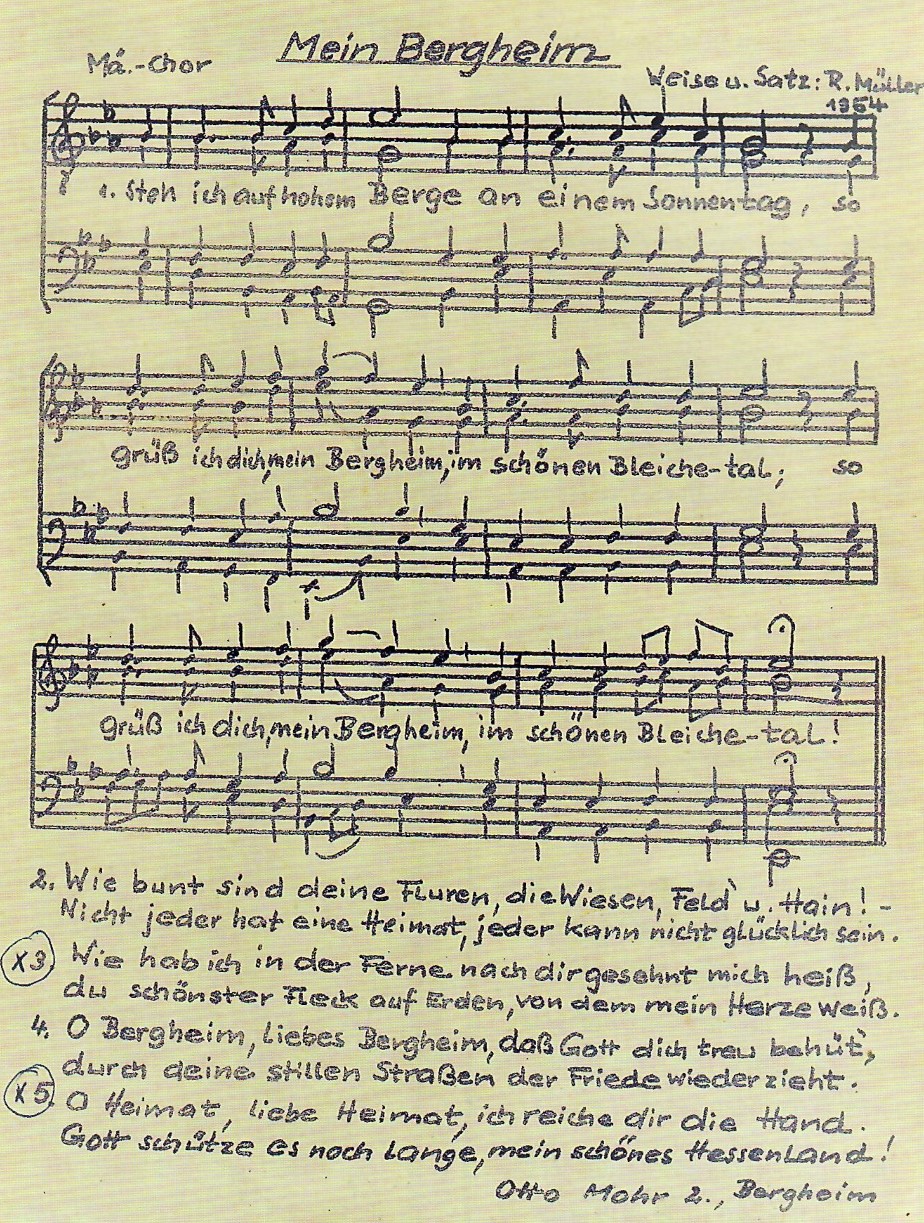 Mein Bergheim
Mä.-Chor
Weise u. Satz: R. Müller
1954
1. Steh ich auf hohem Berge an einem Sonnentag, so
grüß ich dich, mein Bergheim, im schönen Bleiche-tal; so
grüß ich dich, mein Bergheim, im schönen Bleiche-tal!
2. Wie bunt sind deine Fluren, die Wiesen, Feld u. Hain! -
Nicht jeder hat eine Heimat, jeder kann nicht glücklich sein.
x3. Wie hab ich in der Ferne nach dir gesehnt mich heiß,
du schönster Fleck auf Erden, von dem mein Herze weiß.
4. O Bergheim, liebes Bergheim, daß Gott dich treu behüt',
durch deine stillen Straßen der Friede wieder zieht.
x5. O Heimat, liebe Heimat, ich reiche dir die Hand.
Gott schütze es noch lange, mein schönes Hessenland!
Otto Mohr 2., Bergheim